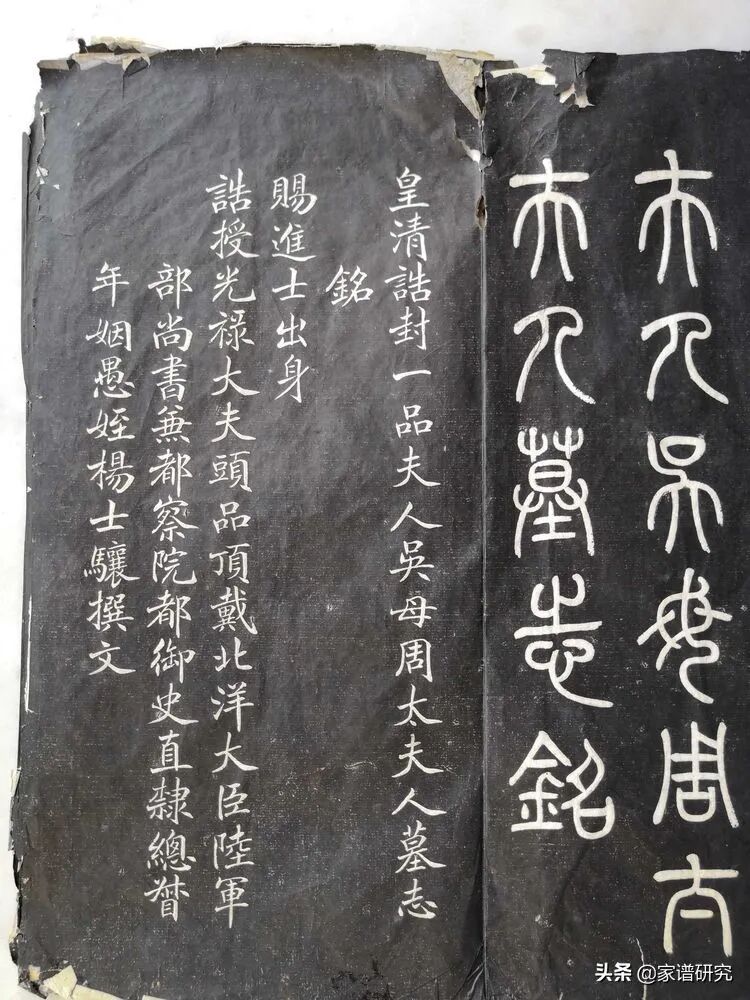 夫人吳母周太
夫人墓志銘
皇清誥封一品夫人吳母周太夫人墓志
銘
賜進士出身
誥授光祿大夫頭品頂戴北洋大臣陸軍
部尚書兼都察院都御史直隸總督
年姻愚姪楊士驤撰文
头条 @家谱研究